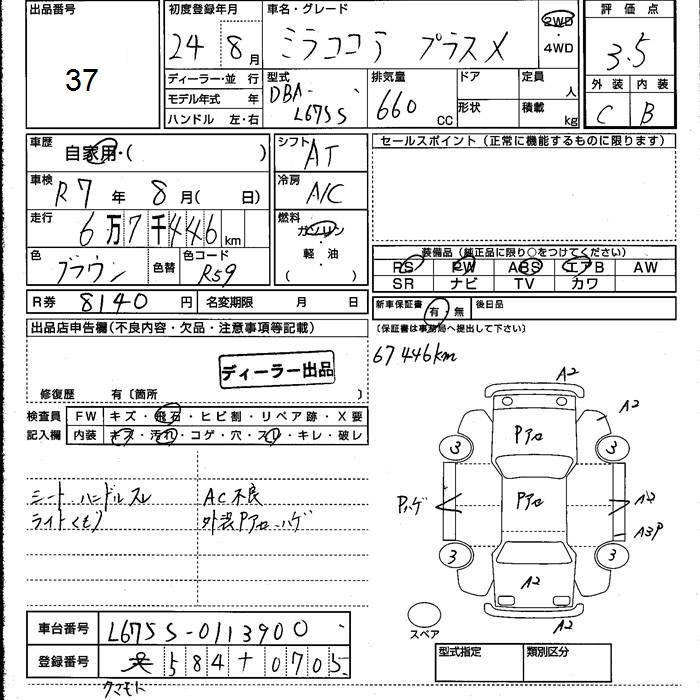 出品番号
37
初度登録年月
24年8月
車名・グレード
ミラココア プラスX
2WD
・
4WD
評価点
3.5
外装 内装
C B
ディーラー・並行
モデル年式 年
ハンドル 左・右
型式
DBA-
L675S
排気量
660 CC
ドア
形状
定員 人
積載 kg
車歴
自家用・( )
車検
R7年 8月( 日)
走行
6万7千446km
色
ブラウン
色替
色コード
R59
シフト
AT
冷房
A/C
燃料
ガソリン
・
軽・油
( )
セールスポイント (正常に機能するものに限ります)
装備品 (純正品に限り○をつけてください)
PS PW ABS エアB AW
SR ナビ TV カワ
R券 8140円 名変期限 月 日
新車保証書 有・無 後日品
(保証書は事務局へ提出して下さい)
67446km
出品店申告欄(不良内容・欠品・注意事項等記載)
ディーラー出品
修復歴 有〔箇所 〕
検査員
記入欄
FW キズ・飛石・ヒビ割・リペア跡・X要
内装 キズ・汚れ・コゲ・穴・スレ・キレ・破レ
シート、ハンドルスレ
ライトくもり
AC不良
外装Pアセ、ハゲ
A2
A2
Pアセ
3
3
Pハゲ
Pアセ
A2
A3P
3
3
A2
A2
スペア
車台番号 L675S-0113900
登録番号 584 + 0705
クマモト
型式指定 類別区分